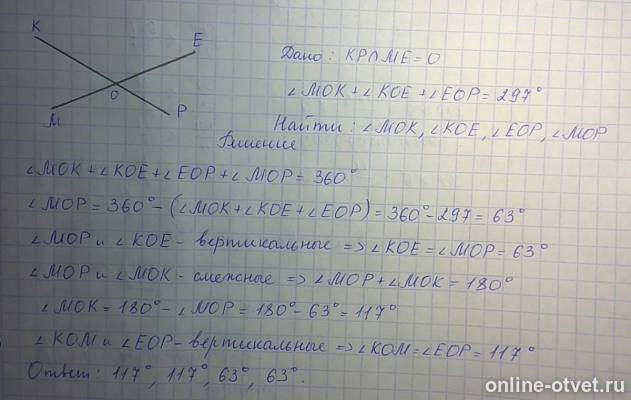 K
E
O
M
P
Дано: KP∩ME=O
∠MOK+∠KOE+∠EOP=297°
Найти: ∠MOK, ∠KOE, ∠EOP, ∠MOP
Решение
∠MOK+∠KOE+∠EOP+∠MOP=360°
∠MOP=360°-(∠MOK+∠KOE+∠EOP)=360°-297=63°
∠MOP и ∠KOE- вертикальные => ∠KOE=∠MOP=63°
∠MOP и ∠MOK- смежные => ∠MOP+∠MOK=180°
∠MOK=180°-∠MOP=180°-63°=117°
∠KOM и ∠EOP- вертикальные => ∠KOM=∠EOP=117°
Ответ: 117°, 117°, 63°, 63°.
online-otvet.ru